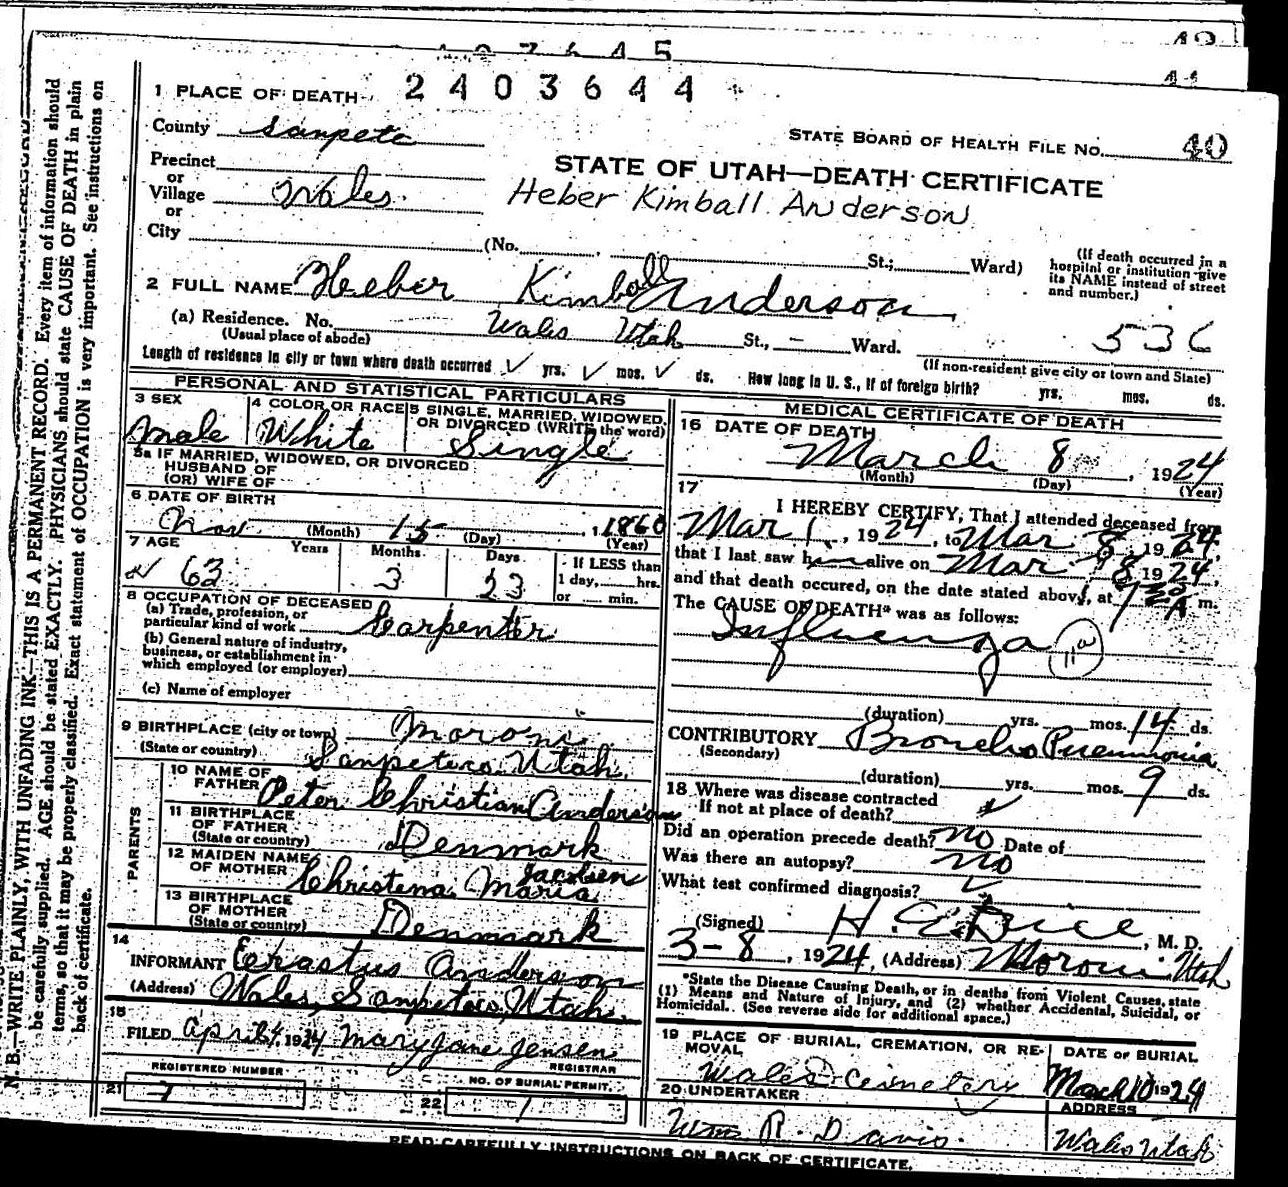 42
2403645
41
2403644
1 PLACE OF DEATH
STATE BOARD OF HEALTH FILE NO. 40
County Sanpete
STATE OF UTAH—DEATH CERTIFICATE
Precinct
or
Village Wales
Heber Kimball Anderson
or
City (No. , St.; Ward)
(If death occurred in a hospital or institution give its NAME instead of street and number.)
2 FULL NAME Heber Kimball Anderson
(a) Residence. No. Wales Utah St., – Ward.
536
(Usual place of abode)
(If non-resident give city or town and State)
Length of residence in city or town where death occurred ✓ yrs. ✓ mos. ✓ ds. How long in U. S., if of foreign birth? yrs. mos. ds.
PERSONAL AND STATISTICAL PARTICULARS
3 SEX
Male
4 COLOR OR RACE
White
5 SINGLE, MARRIED, WIDOWED, OR DIVORCED (WRITE the word)
Single
5a IF MARRIED, WIDOWED, OR DIVORCED
HUSBAND OF
(OR) WIFE OF
6 DATE OF BIRTH
Nov. (Month) 15 (Day) , 1860 (Year)
7 AGE
63 Years
3 Months
23 Days
If LESS than
1 day, hrs.
or min.
8 OCCUPATION OF DECEASED
(a) Trade, profession, or
particular kind of work Carpenter
(b) General nature of industry,
business, or establishment in
which employed (or employer)
(c) Name of employer
9 BIRTHPLACE (city or town) Moroni
(State or country) Sanpete co. Utah.
PARENTS
10 NAME OF
FATHER Peter Christian Anderson
11 BIRTHPLACE
OF FATHER
(State or country) Denmark
12 MAIDEN NAME
OF MOTHER Christena Maria Jacobsen
13 BIRTHPLACE
OF MOTHER
(State or country) Denmark
14
INFORMANT Erastus Anderson
(Address) Wales, Sanpete co, Utah.
15
FILED April 4, 1924 Mary Jane Jensen
REGISTRAR
REGISTERED NUMBER
21 7
NO. OF BURIAL PERMIT
22 1
MEDICAL CERTIFICATE OF DEATH
16 DATE OF DEATH
March 8 , 1924
(Month) (Day) (Year)
17
I HEREBY CERTIFY, That I attended deceased from
Mar 1, 1924, to Mar 8, 1924,
that I last saw him alive on Mar 8, 1924,
and that death occured, on the date stated above, at A m.
The CAUSE OF DEATH* was as follows:
Influenza 11a
(duration) yrs. mos. 14 ds.
CONTRIBUTORY Broncho Pneumonia
(Secondary)
(duration) yrs. mos. 9 ds.
18 Where was disease contracted
If not at place of death?
Did an operation precede death? no Date of
Was there an autopsy? no
What test confirmed diagnosis? ✓
(Signed) H. C. Dice, M. D.
3-8, 1924, (Address) Moroni Utah
*State the Disease Causing Death, or in deaths from Violent Causes, state
(1) Means and Nature of Injury, and (2) whether Accidental, Suicidal, or
Homicidal. (See reverse side for additional space.)
19 PLACE OF BURIAL, CREMATION, OR REMOVAL
Wales Cemetery
DATE OF BURIAL
March 10 1924
20 UNDERTAKER
Wm R. Davis.
ADDRESS
Wales Utah
READ CAREFULLY INSTRUCTIONS ON BACK OF CERTIFICATE.
N. B.—WRITE PLAINLY, WITH UNFADING INK—THIS IS A PERMANENT RECORD. Every item of information should
be carefully supplied. AGE should be stated EXACTLY. PHYSICIANS should state CAUSE OF DEATH in plain
terms, so that it may be properly classified. Exact statement of OCCUPATION is very important. See instructions on
back of certificate.